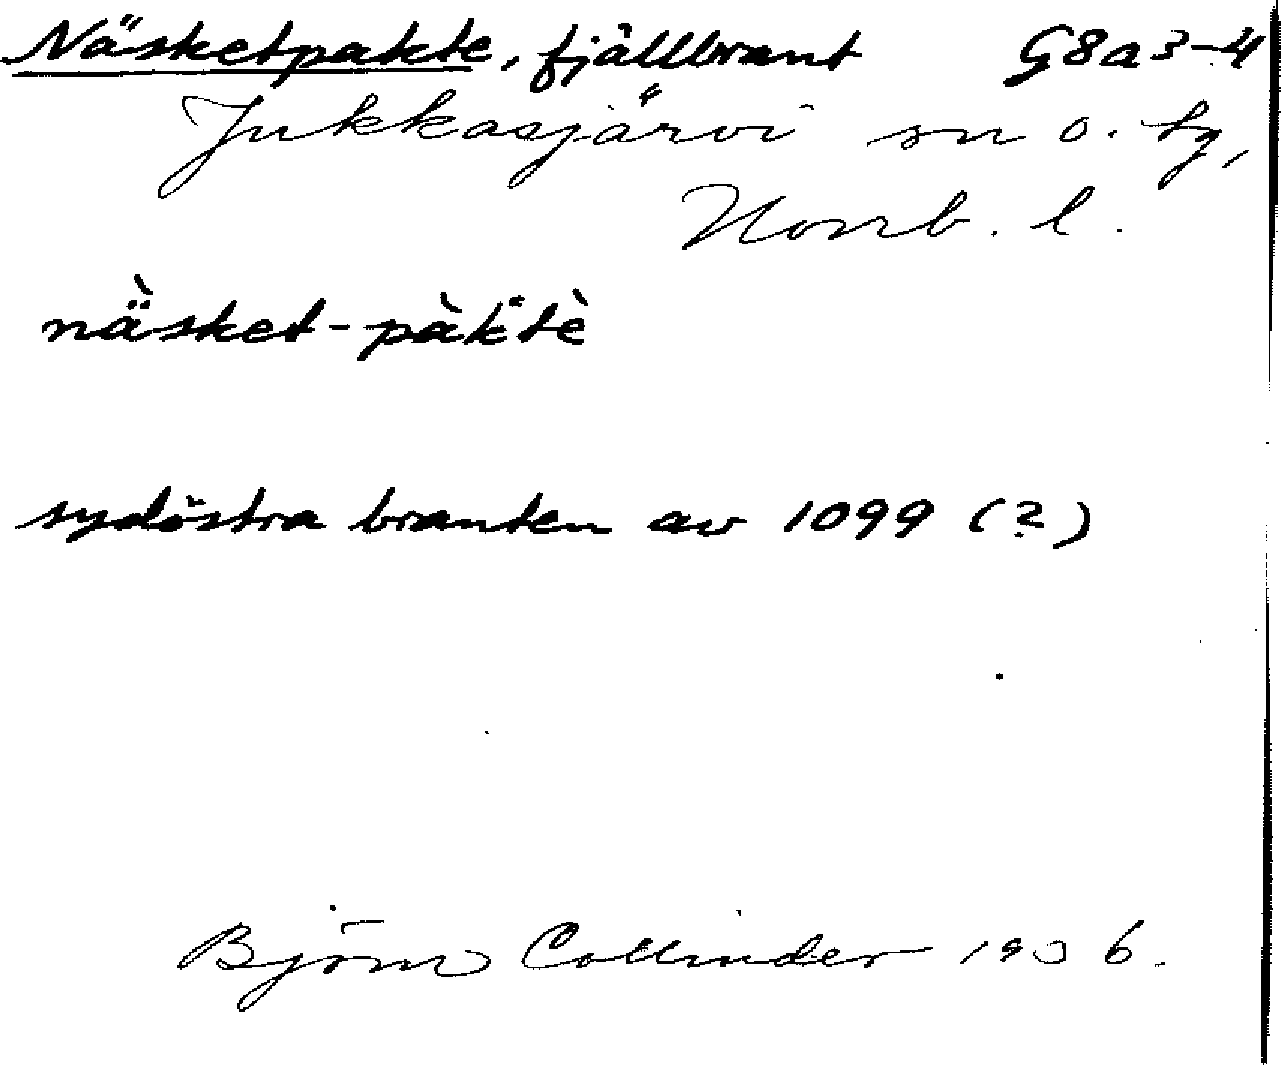 Näsketpakte, fjällbrant G8a3-4
Jukkasjärvi sn o. tg,
Norrb. l.
nä̀sket-pàkˈtè
sydöstra branten av 1099 (?)
Björn Collinder 1936.